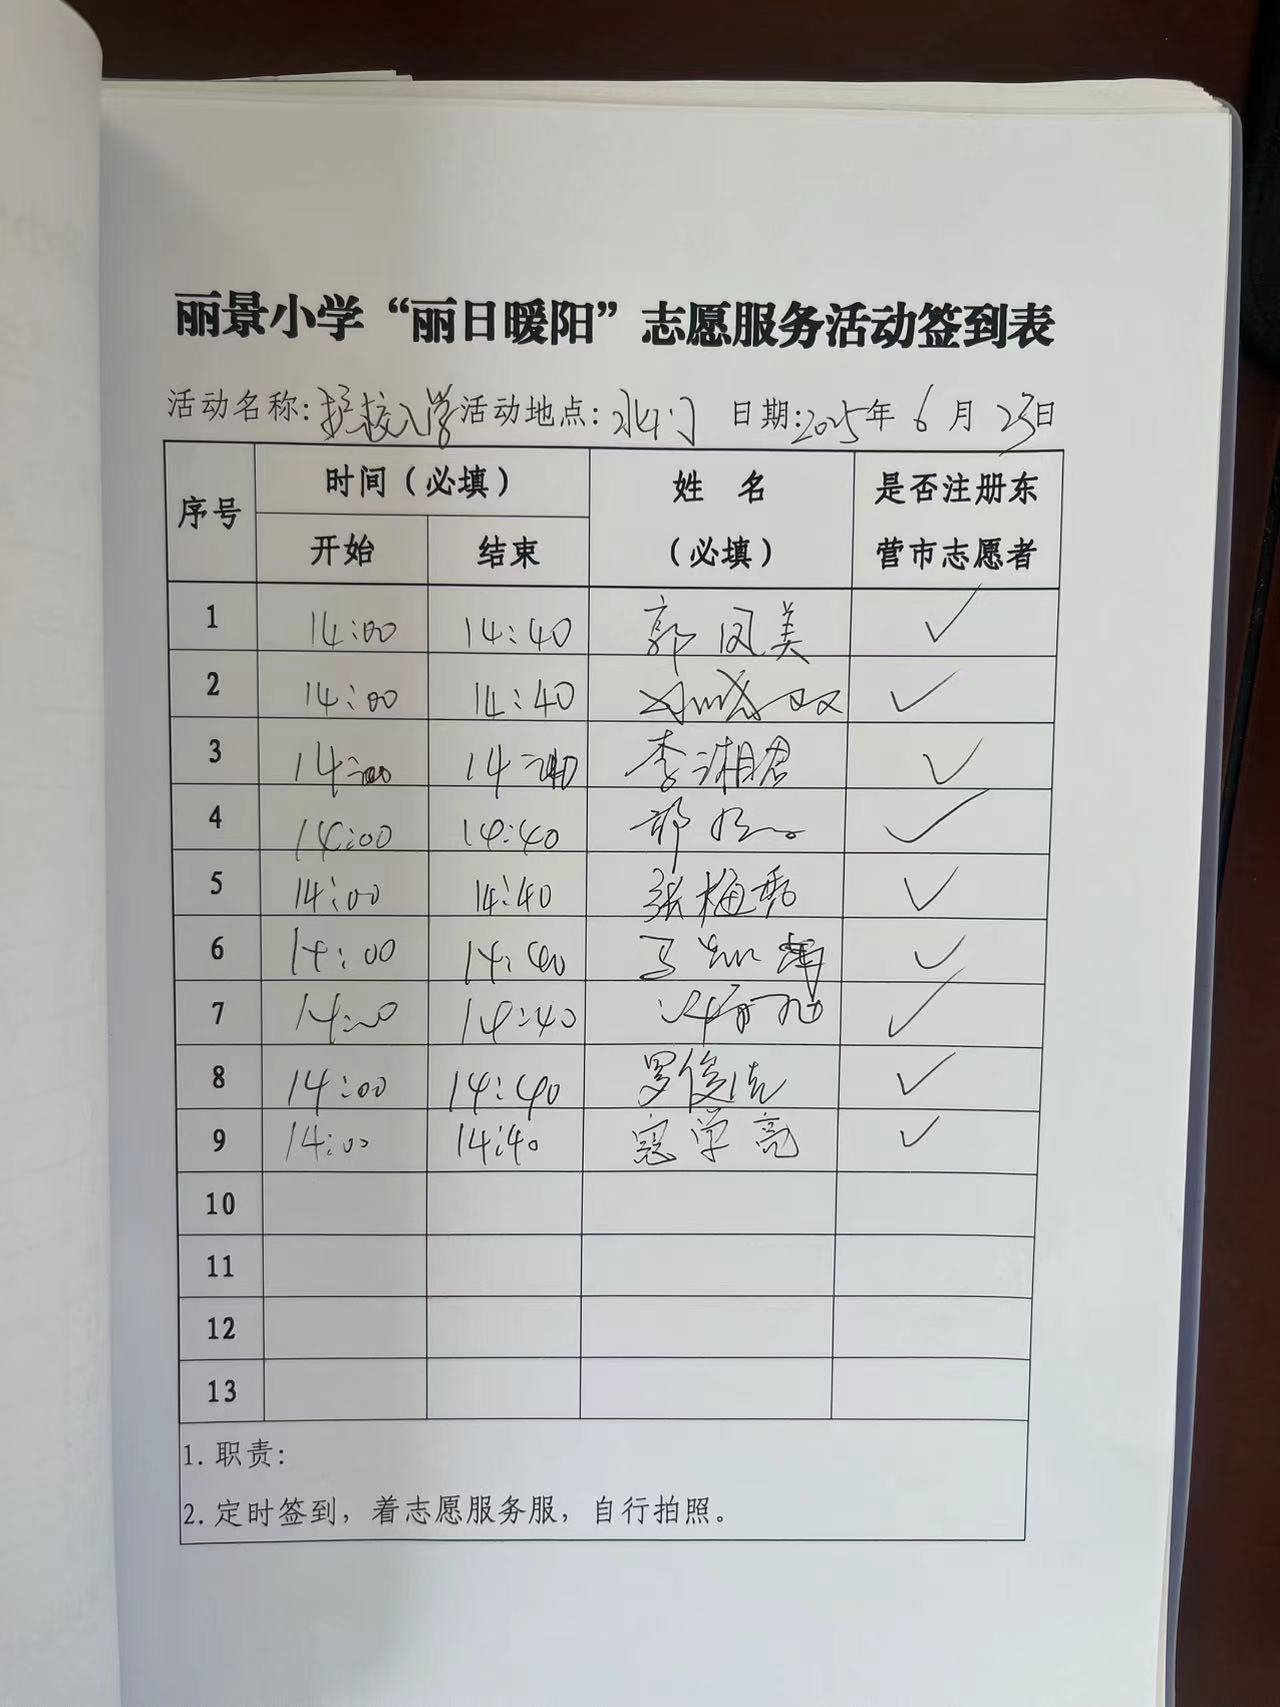 丽景小学“丽日暖阳”志愿服务活动签到表
活动名称:护校入学 活动地点:北门 日期:2025年6月23日
序号 时间（必填） 姓 名（必填） 是否注册东营市志愿者
开始 结束
1 14:00 14:40 郭凤美 ✓
2 14:00 14:40 ✓
3 14:00 14:40 李湘君 ✓
4 14:00 14:40 ✓
5 14:00 14:40 张梅秀 ✓
6 14:00 14:40 ✓
7 14:00 14:40 ✓
8 14:00 14:40 罗俊洁 ✓
9 14:00 14:40 寇学亮 ✓
10
11
12
13
1. 职责:
2. 定时签到，着志愿服务服，自行拍照。